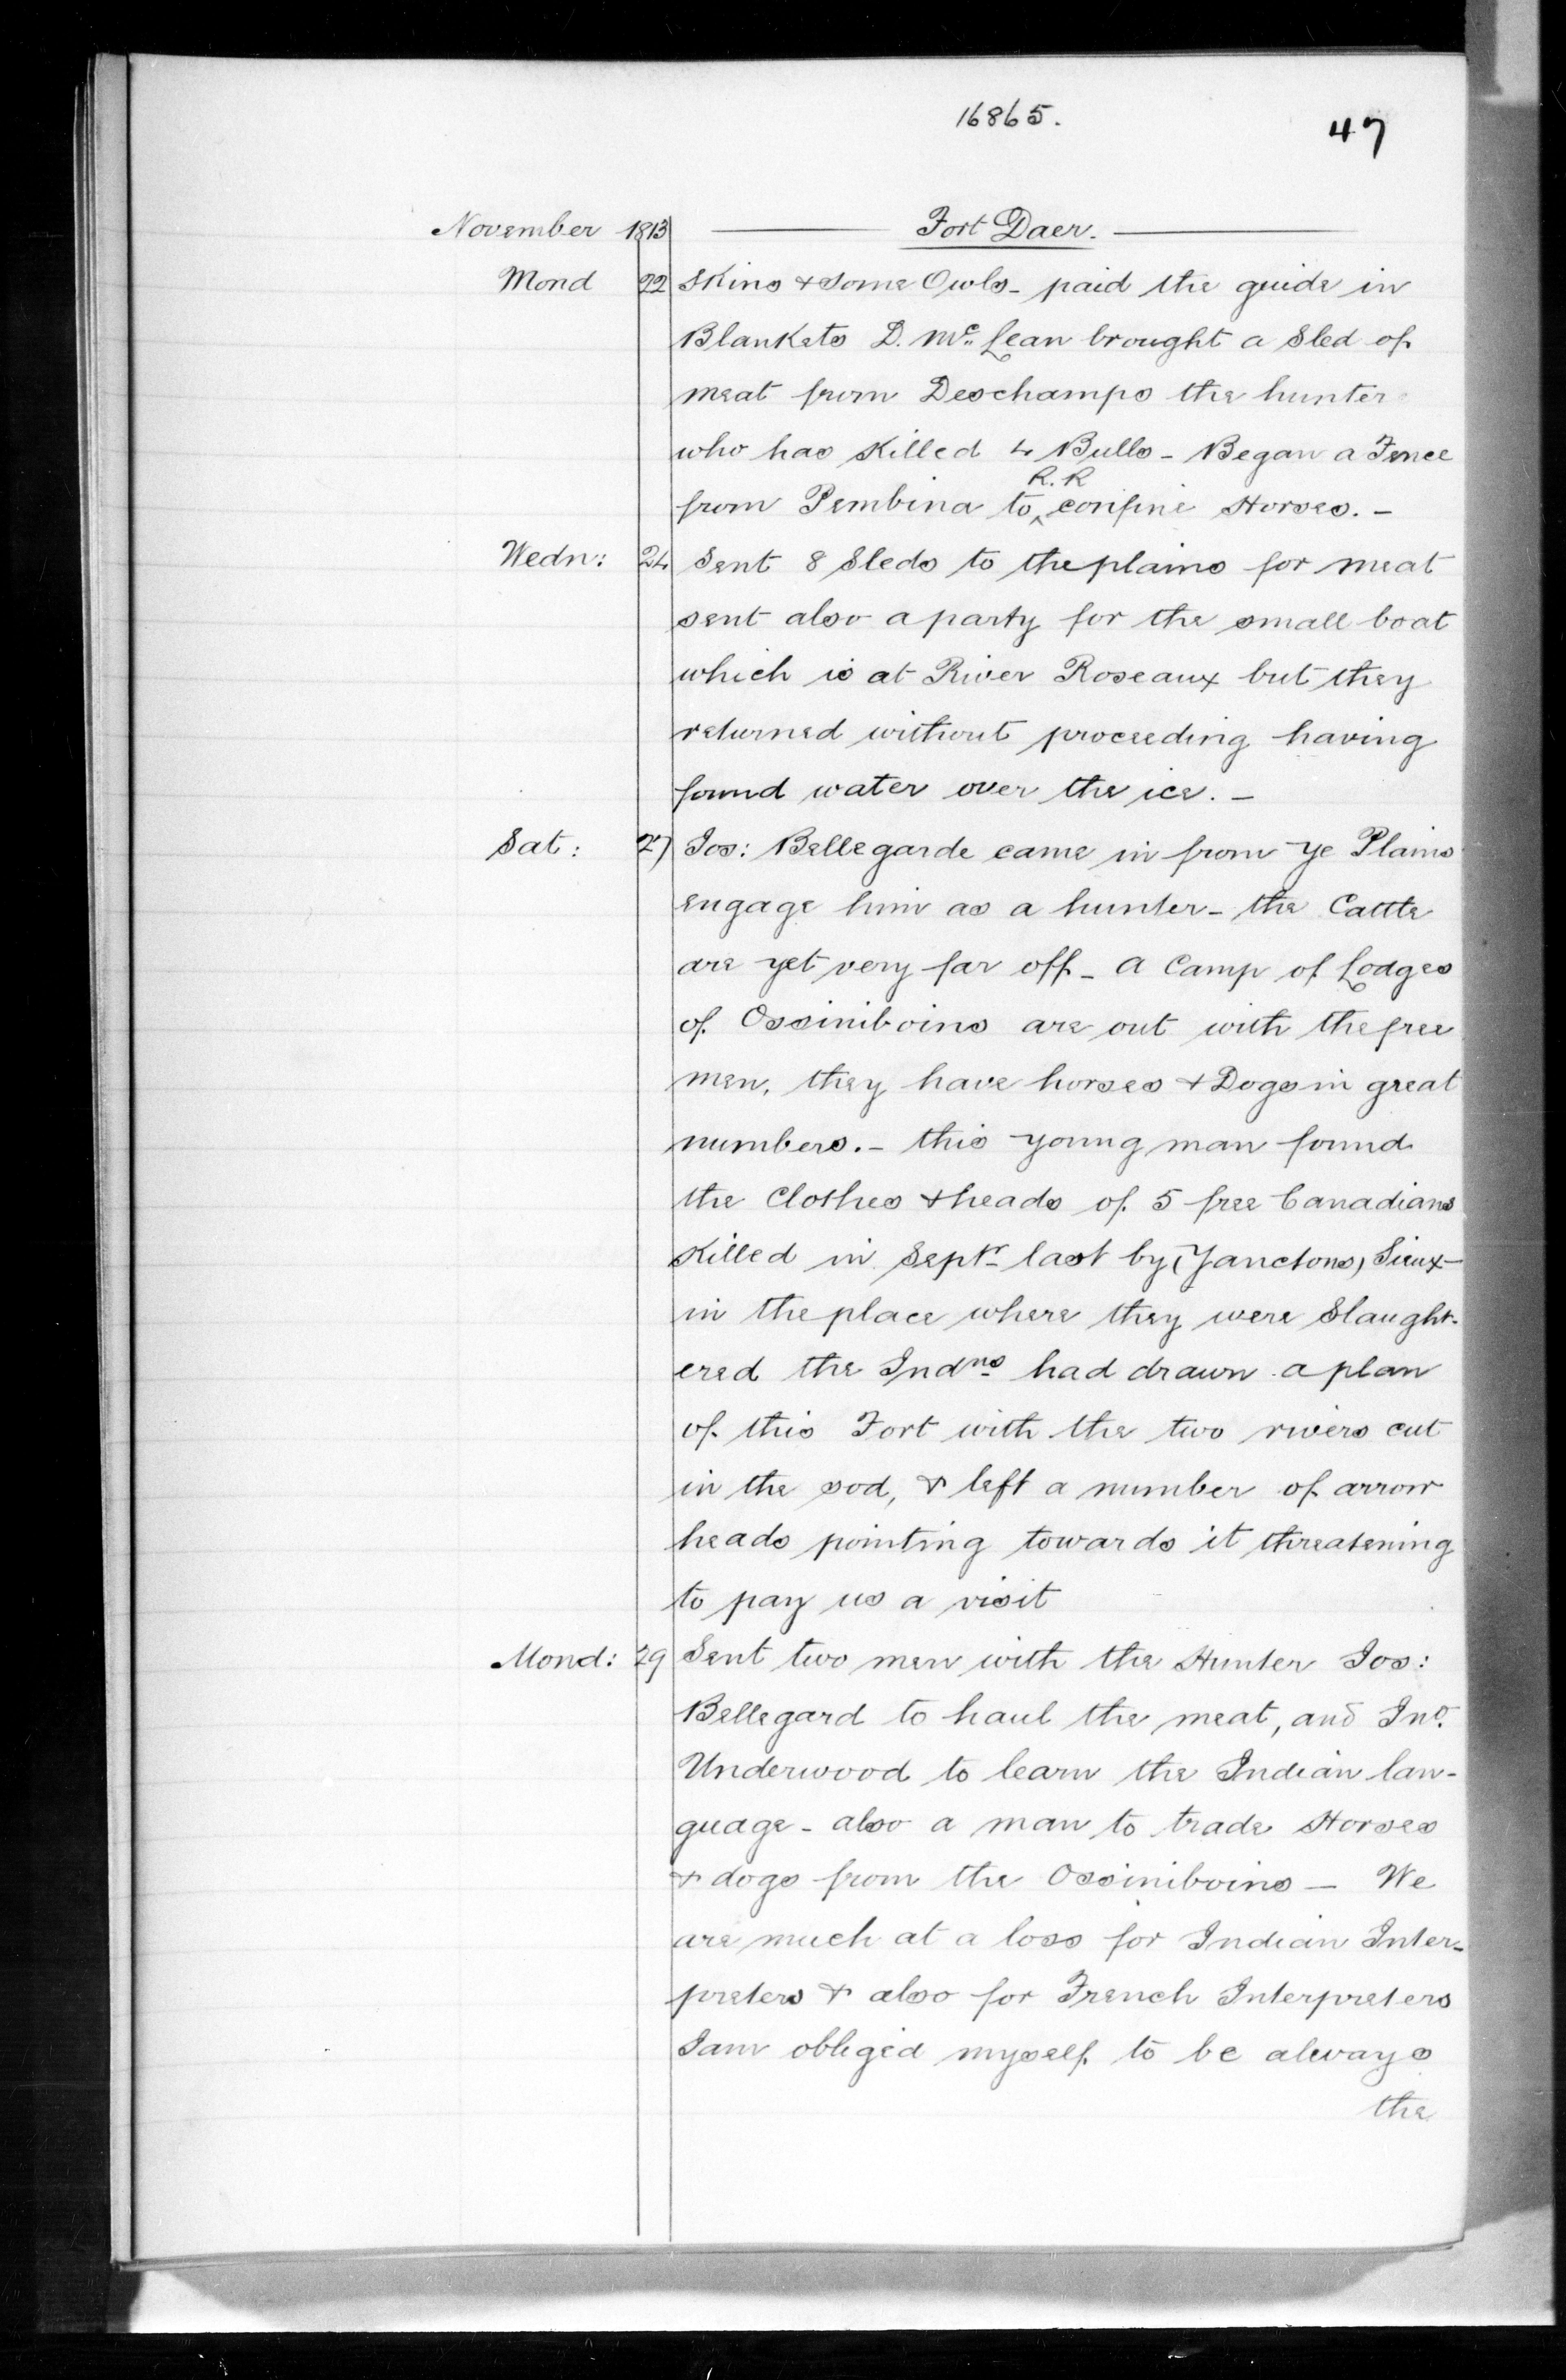 16865.
47
November 1813 Fort Daer.
Mond 22 Skins & some Owls - paid the guide in
Blankets D. McLean brought a Sled of
meat from Deschamps the hunter
who has Killed 4 Bulls - Began a Fence
R. R
from Pembina to ^ confine Horses. -
Wedn: 24 Sent 8 Sleds to the plains for meat
sent also a party for the small boat
which is at River Roseaux but they
returned without proceeding having
found water over the ice. -
Sat: 27 Jos: Bellegarde came in from ye Plains
engage him as a hunter - the Cattle
are yet very far off - a Camp of Lodges
of Ossiniboins are out with the free
men, they have horses & Dogs in great
numbers. - this young man found
the Clothes & heads of 5 free Canadians
Killed in Septr last by (Yanctons) Sieux -
in the place where they were Slaught-
ered the Indns had drawn a plan
of this Fort with the two rivers cut
in the sod, & left a number of arrow
heads pointing towards it threatening
to pay us a visit
Mond: 29 Sent two men with the Hunter Jos:
Bellegard to haul the meat, and Jno.
Underwood to learn the Indian lan-
guage - also a man to trade Horses
& dogs from the Ossiniboins - We
are much at a loss for Indian Inter-
preters & also for French Interpreters
I am obliged myself to be always
the